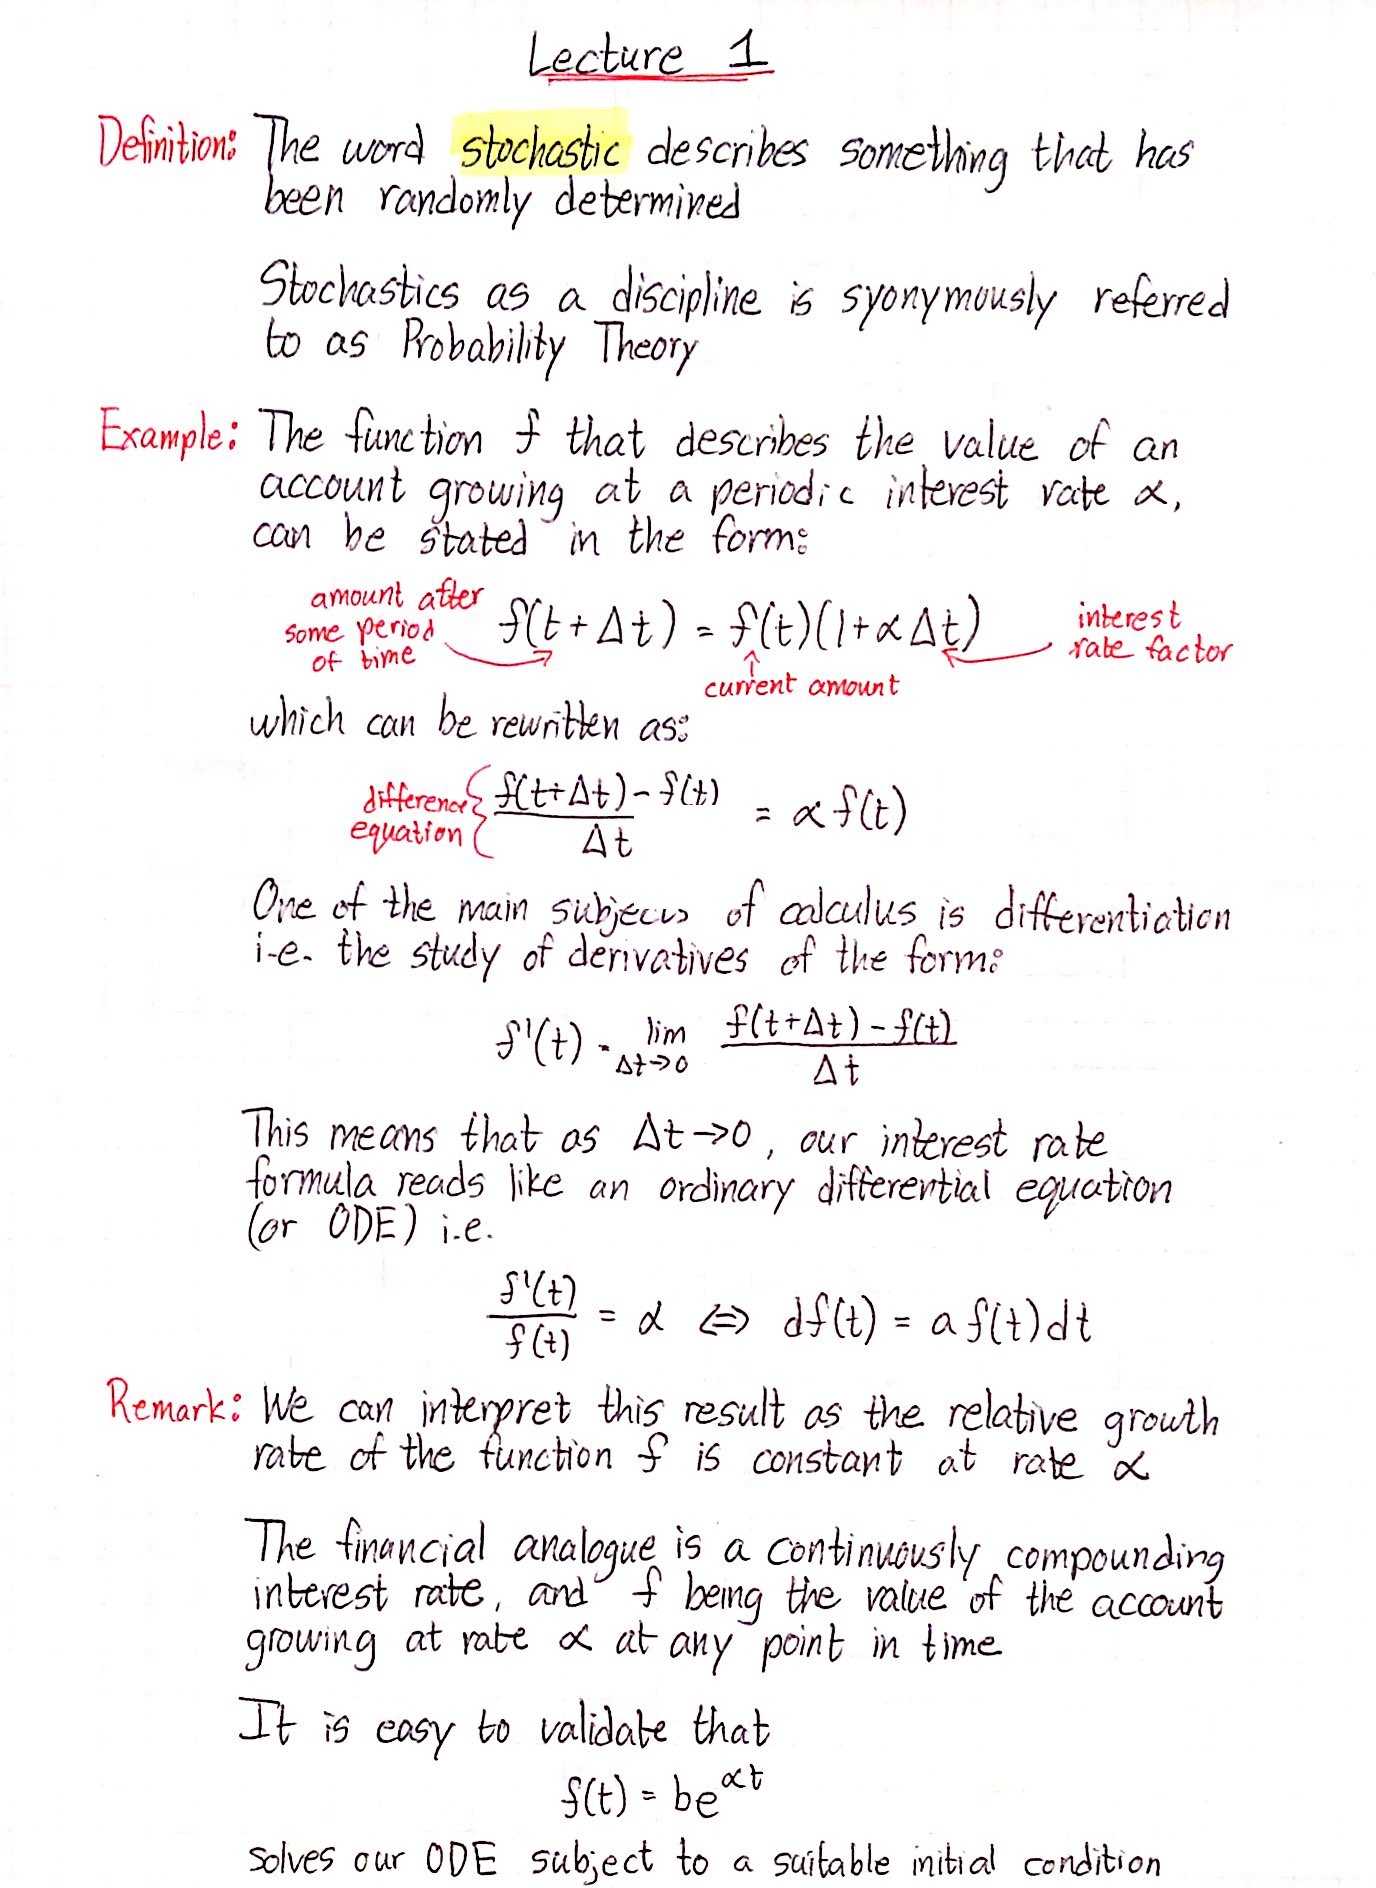 Lecture 1
Definition: The word stochastic describes something that has
been randomly determined
Stochastics as a discipline is syonymously referred
to as Probability Theory
Example: The function f that describes the value of an
account growing at a periodic interest rate α,
can be stated in the form:
amount after
some period
of time
f(t+Δt) = f(t)(1+αΔt)
interest
rate factor
current amount
which can be rewritten as:
difference
equation
f(t+Δt)-f(t)
Δt
= αf(t)
One of the main of calculus is differentiation
i.e. the study of derivatives of the form:
f'(t) = lim Δt→0 f(t+Δt)-f(t)
Δt
This means that as Δt→0, our interest rate
formula reads like an ordinary differential equation
(or ODE) i.e.
f'(t)
f(t)
= α ⇔ df(t) = a f(t)dt
Remark: We can interpret this result as the relative growth
rate of the function f is constant at rate α
The financial analogue is a continuously compounding
interest rate, and f being the value of the account
growing at rate α at any point in time
It is easy to validate that
f(t) = be^αt
solves our ODE subject to a suitable initial condition